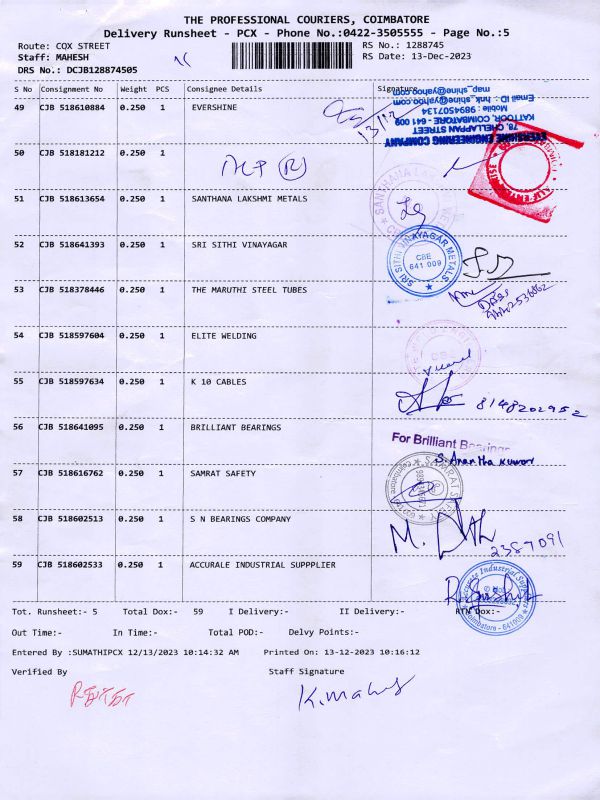 THE PROFESSIONAL COURIERS, COIMBATORE
Delivery Runsheet - PCX - Phone No.:0422-3505555 - Page No.:5
Route: CQX STREET RS No.: 1288745
Staff: MAHESH RS Date: 13-Dec-2023
DRS No.: DCJB128874505
S No Consignment No Weight PCS Consignee Details Signature
49 CJB 518610884 0.250 1 EVERSHINE 13/12
EVERSHINE ENGINEERING COMPANY
78, CHELLAPPAN STREET
KATTOOR, COIMBATORE - 641 009
Mobile : 9894507134
Email ID : hnk_shine@yahoo.com
map_shine@yahoo.com
50 CJB 518181212 0.250 1 ALP (R)
51 CJB 518613654 0.250 1 SANTHANA LAKSHMI METALS
52 CJB 518641393 0.250 1 SRI SITHI VINAYAGAR
SRI SITHI VINAYAGAR METALS
CBE
641 009
53 CJB 518378446 0.250 1 THE MARUTHI STEEL TUBES
54 CJB 518597604 0.250 1 ELITE WELDING
55 CJB 518597634 0.250 1 K 10 CABLES 8148202952
56 CJB 518641095 0.250 1 BRILLIANT BEARINGS
For Brilliant Bearings
S. Anantha Kumar
57 CJB 518616762 0.250 1 SAMRAT SAFETY
58 CJB 518602513 0.250 1 S N BEARINGS COMPANY
2387091
59 CJB 518602533 0.250 1 ACCURALE INDUSTRIAL SUPPPLIER
Accurate Industrial Suppliers
Coimbatore - 641009
Tot. Runsheet:- 5 Total Dox:- 59 I Delivery:- II Delivery:- RTN Dox:-
Out Time:- In Time:- Total POD:- Delvy Points:-
Entered By :SUMATHIPCX 12/13/2023 10:14:32 AM Printed On: 13-12-2023 10:16:12
Verified By Staff Signature
K. Mahesh